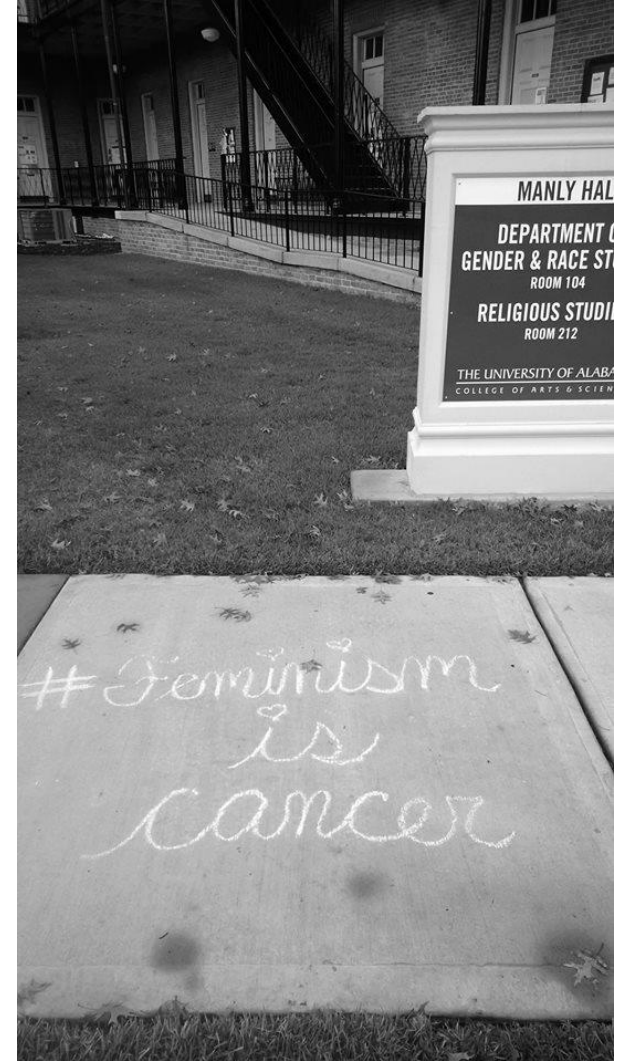 MANLY HAL
DEPARTMENT
GENDER & RACE
ROOM 104
RELIGIOUS
ROOM 212
THE UNIVERSITY OF
COLLEGE OF ARTS &
#Feminism
is
cancer